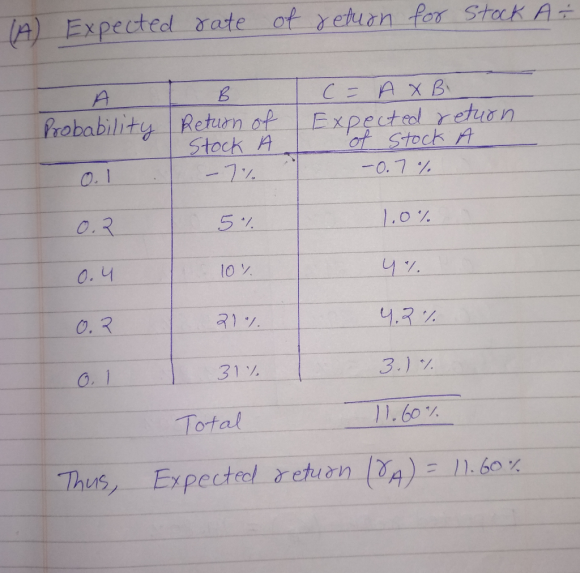 (A) Expected rate of return for Stock A ÷
A B C = A X B.
Probability Return of Stock A Expected return of Stock A
0.1 -7% -0.7%
0.2 5% 1.0%
0.4 10% 4%
0.2 21% 4.2%
0.1 31% 3.1%
Total 11.60%
Thus, Expected return (rA) = 11.60%